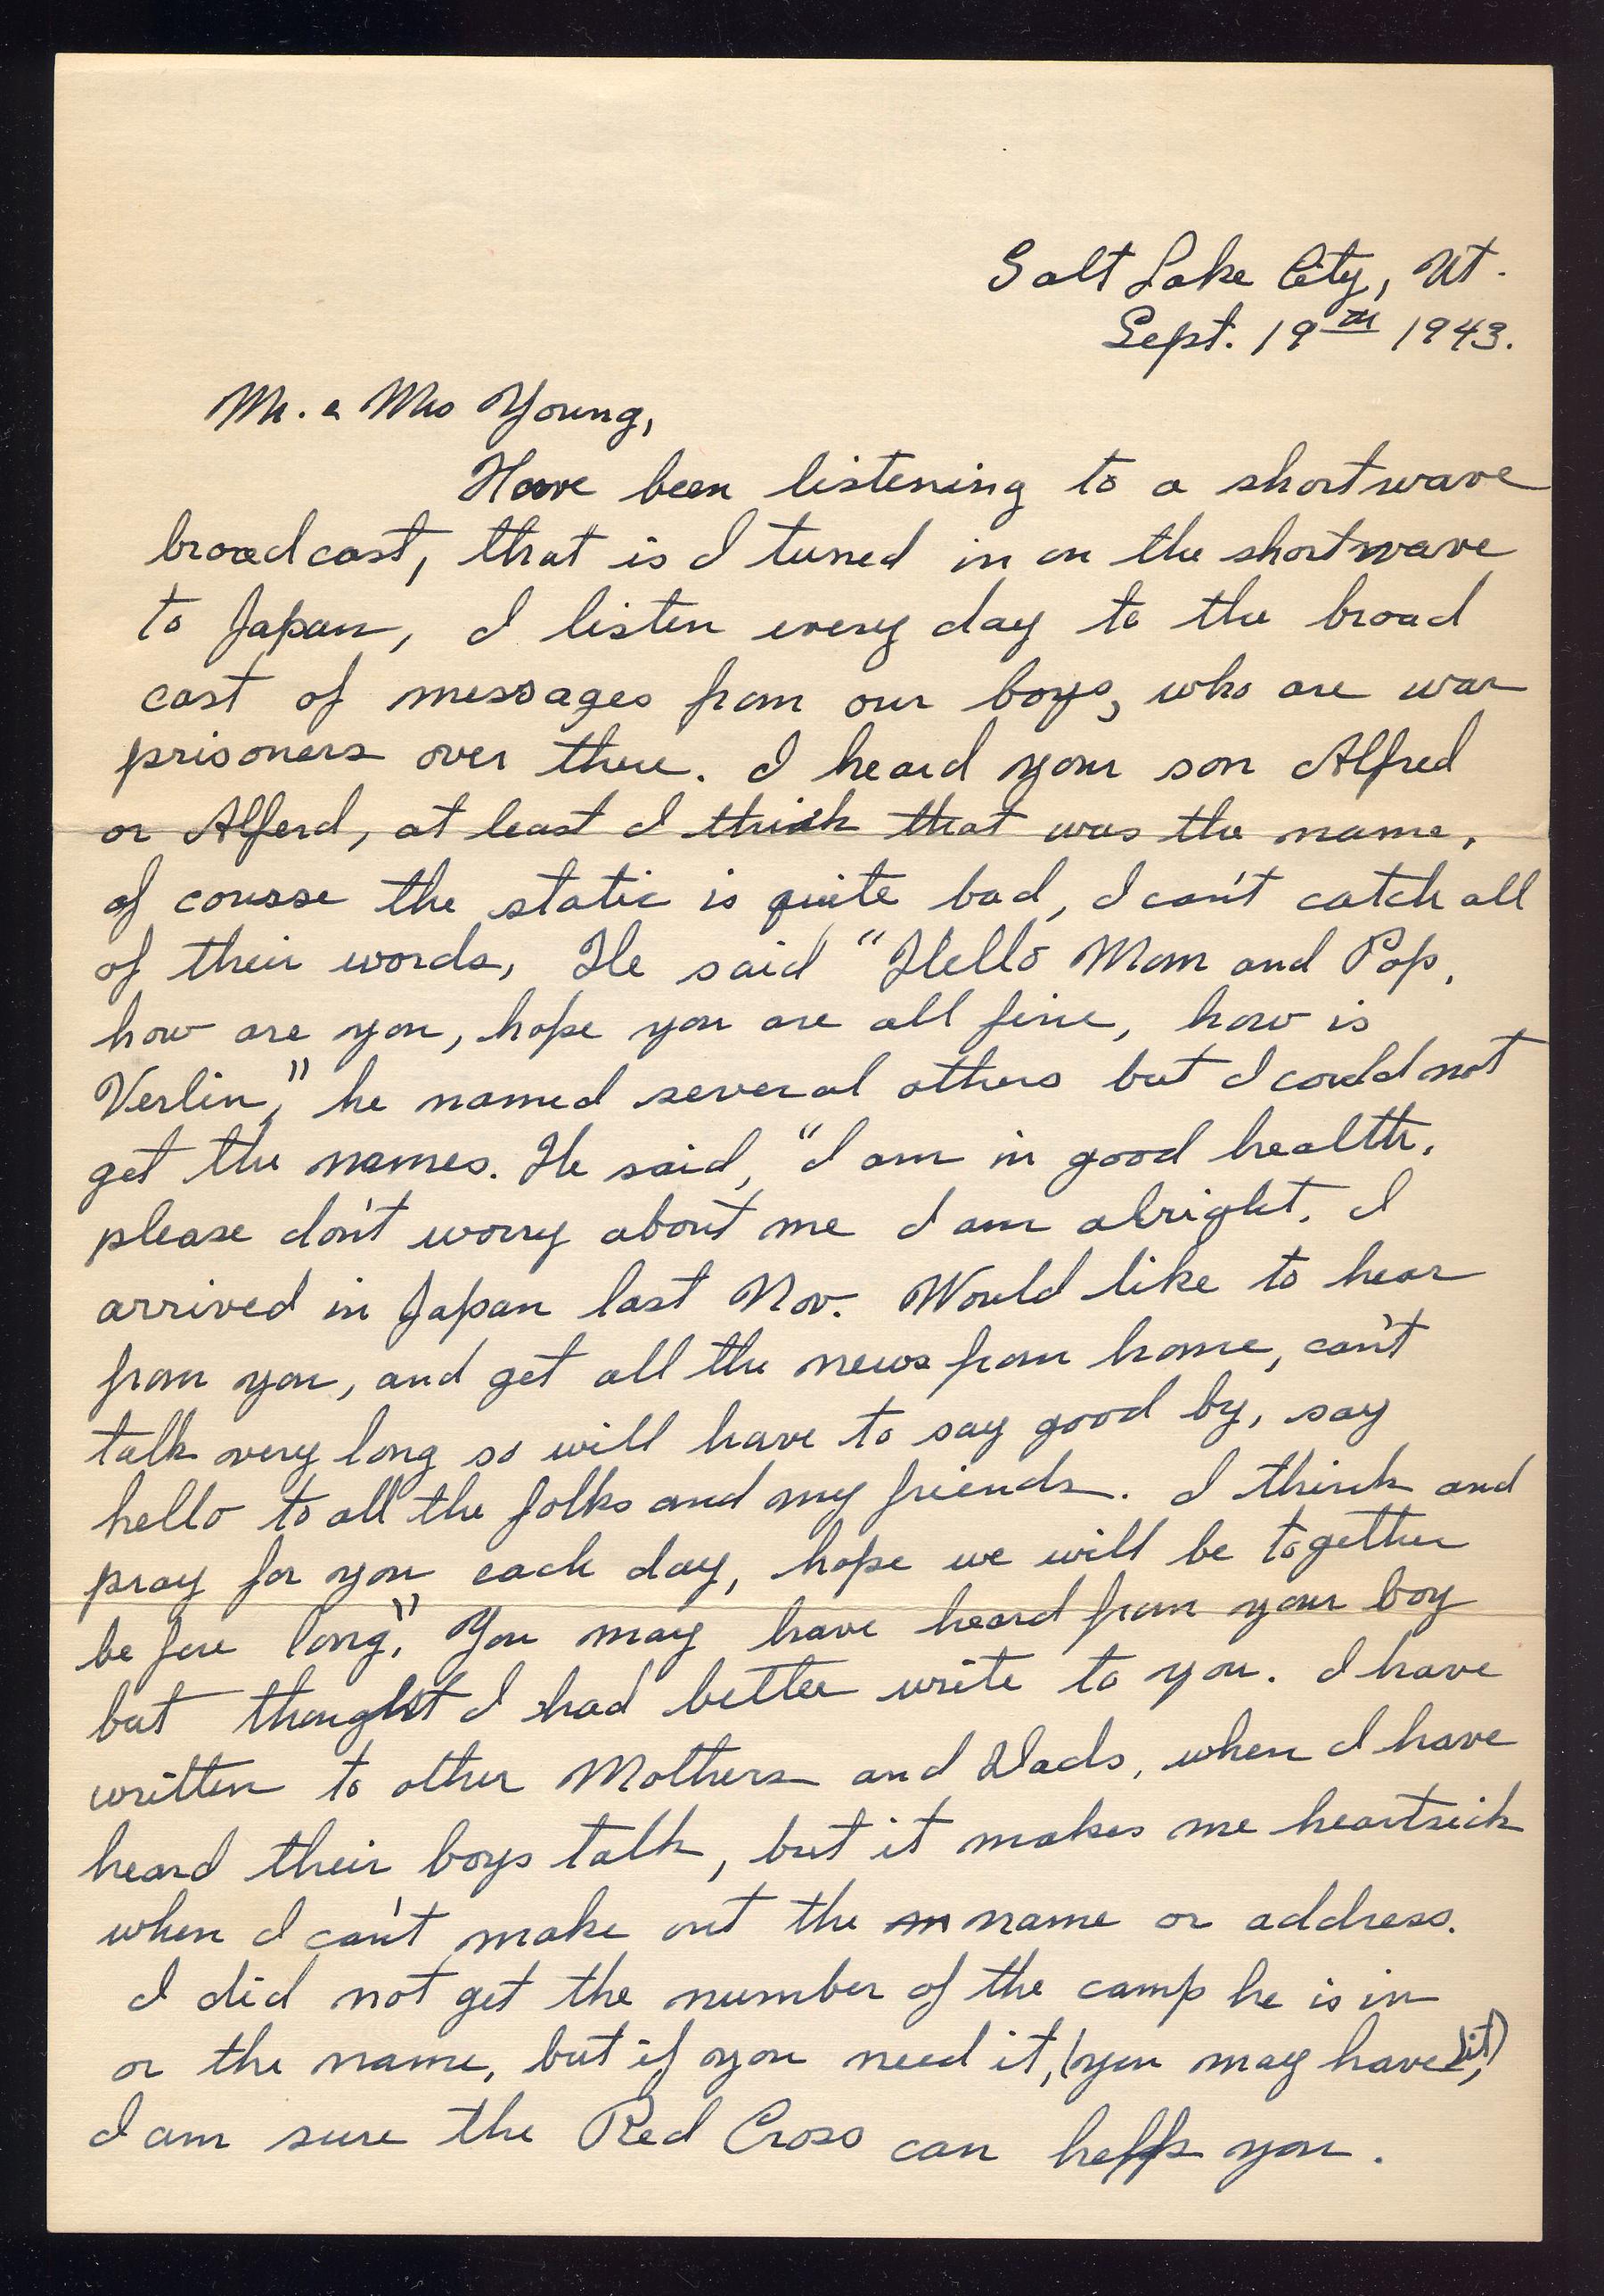 Salt Lake City, Ut.
Sept. 19th 1943.
Mr. & Mrs Young,
Have been listening to a shortwave
broadcast, that is I tuned in on the shortwave
to Japan, I listen every day to the broad
cast of messages from our boys, who are war
prisoners over there. I heard your son Alfred
or Alferd, at least I think that was the name,
of course the static is quite bad, I can't catch all
of their words, He said "Hello Mom and Pop,
how are you, hope you are all fine, how is
Verlin," he named several others but I could not
get the names. He said, "I am in good health,
please don't worry about me I am alright. I
arrived in Japan last Nov. Would like to hear
from you, and get all the news from home, can't
talk very long so will have to say good by, say
hello to all the folks and my friends. I think and
pray for you each day, hope we will be together
before long." You may have heard from your boy
but thought I had better write to you. I have
written to other Mothers and Dads, when I have
heard their boys talk, but it makes me heartsick
when I can't make out the name or address.
I did not get the number of the camp he is in
or the name, but if you need it, (you may have it),
I am sure the Red Cross can help you.